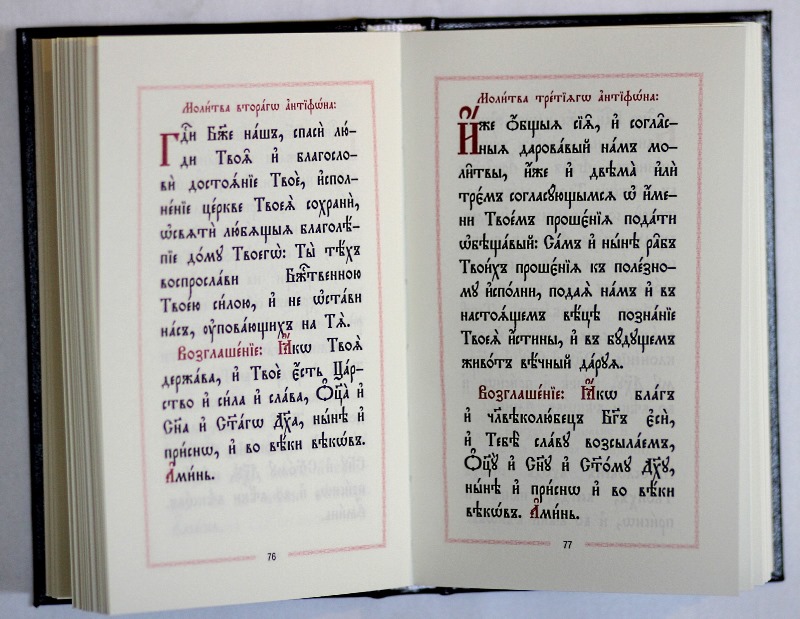 Моли́тва втора́гѡ а҆нтїфѡ́на:
Гдⷭ҇и Бж҃е на́шъ, спасѝ лю́-
ди Твоѧ̑ и҆ благосло-
вѝ достоѧ́нїе Твоѐ, и҆спол-
не́нїе це́ркве Твоеѧ̀ сохранѝ,
ѡ҆свѧтѝ лю́бѧщыѧ благолѣ́-
пїе до́му Твоегѡ̀: Ты̀ тѣ́хъ
воспросла́ви Бжⷭ҇твенною
Твое́ю си́лою, и҆ не ѡ҆ста́ви
на́съ, ᲂу҆пова́ющихъ на Тѧ̀.
Возглаше́нїе: Ꙗ҆́кѡ Твоѧ̀
держа́ва, и҆ Твоѐ є҆́сть Ца́р-
ство и҆ си́ла и҆ сла́ва, Ѻ҆ц҃а̀ и҆
Сн҃а и҆ Ст҃а́гѡ Дх҃а, ны́нѣ и҆
при́снѡ, и҆ во вѣ́ки вѣкѡ́въ.
А҆ми́нь.
76
Моли́тва тре́тїѧгѡ а҆нтїфѡ́на:
И҆́же ѻ҆́бщыѧ сїѧ̑, и҆ соглⷭ҇а-
ныѧ дарова́вый на́мъ мо-
ли̑твы, и҆́же и҆ двѣма̀ и҆лѝ
тре́мъ согласу́ющымсѧ ѡ҆ и҆́ме-
ни Твое́мъ проше́нїѧ пода́ти
ѡ҆бѣща́вый: Са́мъ и҆ ны́нѣ ра̑бъ
Твои́хъ проше́нїѧ къ поле́зно-
му и҆спо́лни, подаѧ̀ на́мъ и҆ въ
настоѧ́щемъ вѣ́цѣ позна́нїе
Твоеѧ̀ и҆́стины, и҆ въ бу́дущемъ
живо́тъ вѣ́чный да́руѧ.
Возглаше́нїе: Ꙗ҆́кѡ бла́гъ
и҆ чл҃вѣколю́бецъ Бг҃ъ є҆сѝ,
и҆ Тебѣ̀ сла́ву возсыла́емъ,
Ѻ҆ц҃у̀ и҆ Сн҃у и҆ Ст҃о́му Дх҃у,
ны́нѣ и҆ при́снѡ и҆ во вѣ́ки
вѣкѡ́въ. А҆ми́нь.
77